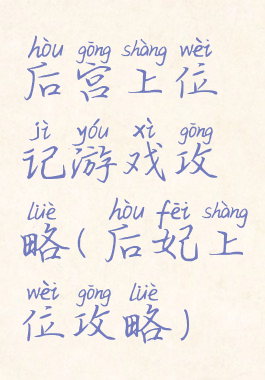 hòu gōng shàng wèi
后宫上位
jì yóu xì gōng
记游戏攻
lüè hòu fēi shàng
略(后妃上
wèi gōng lüè
位攻略)